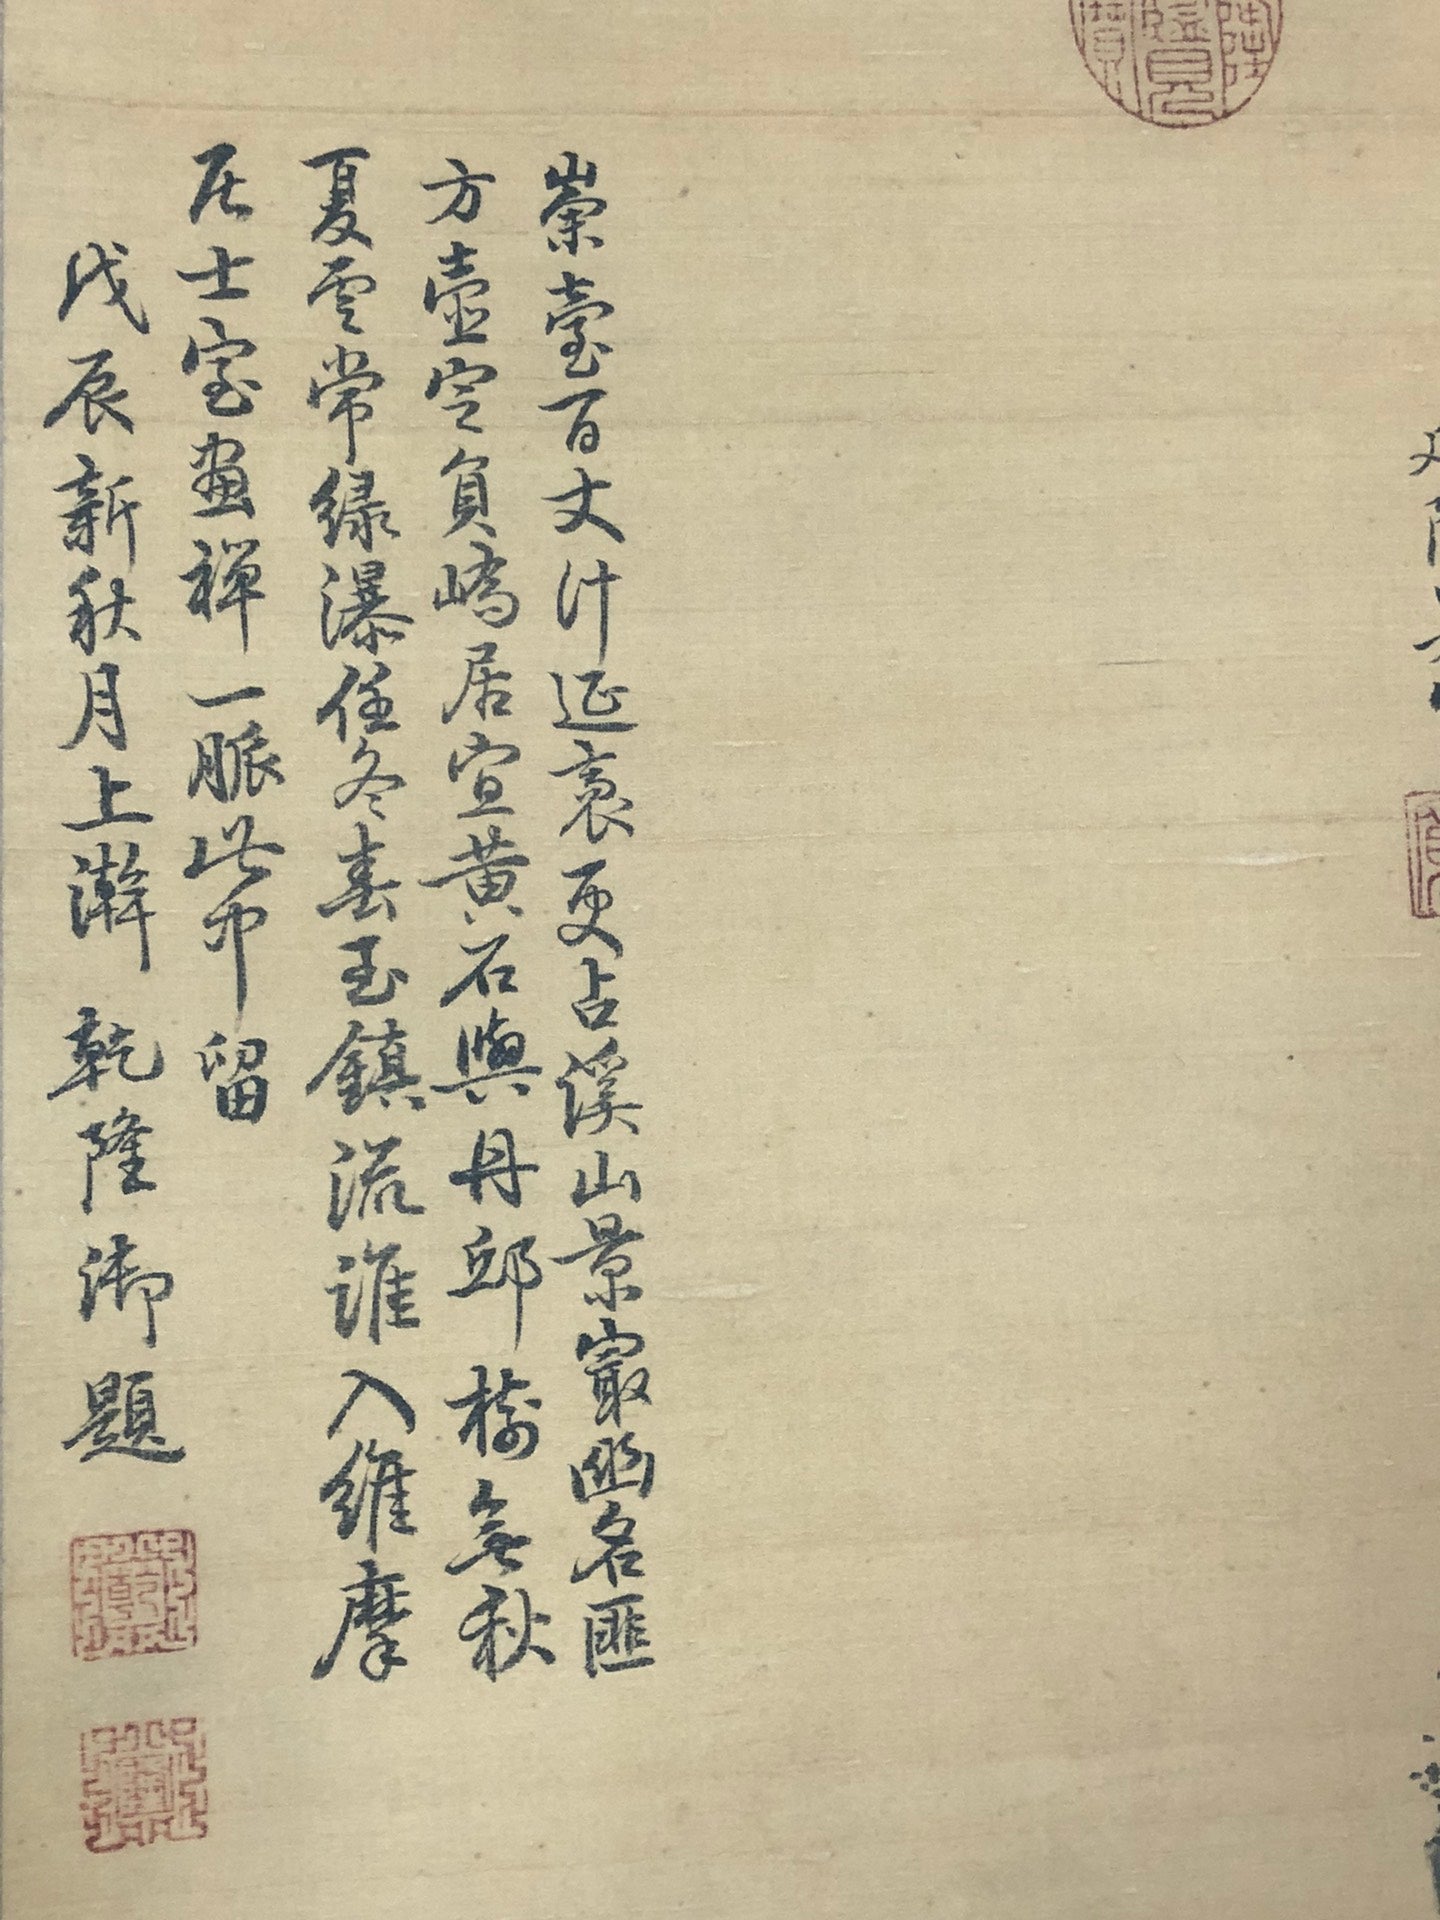 崇臺百丈計延袤更占溪山景寂幽名匪
方壺定負嶠居宣黄石與丹邱樹無秋
夏雲常緑瀑任冬春玉鎮流誰入維摩
居士室畫禪一脈此中留
戊辰新秋月上澣乾隆御題